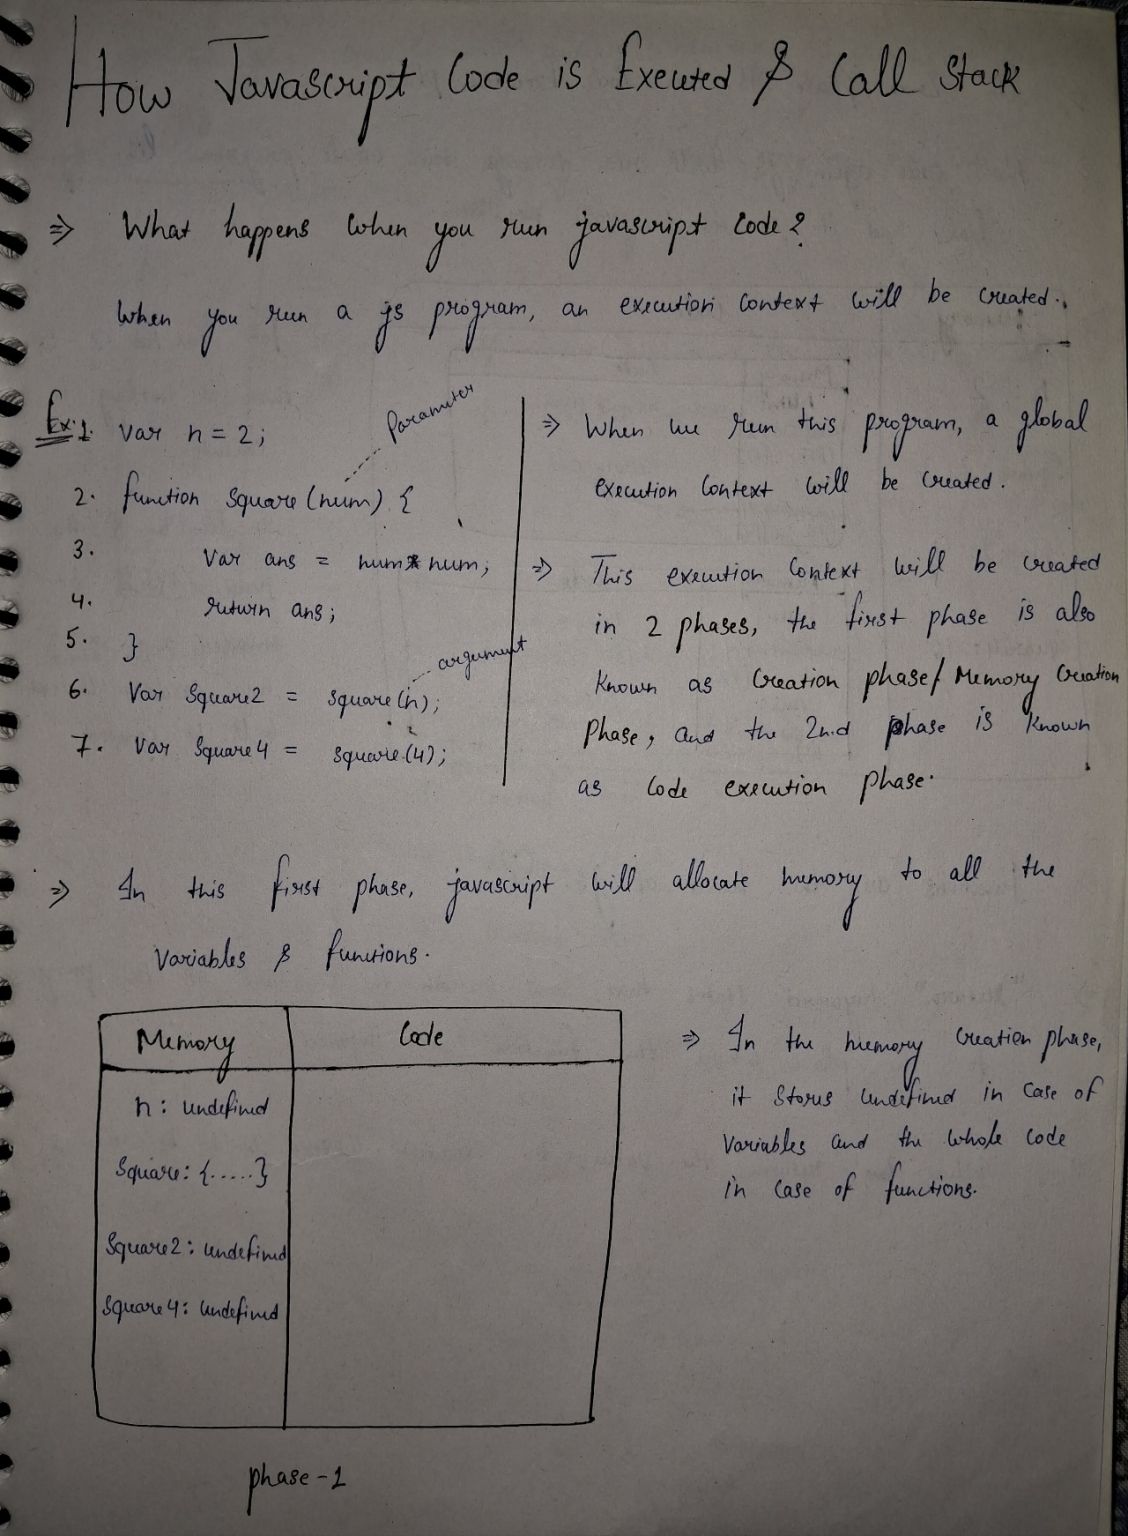 How Javascript Code is Exeuted & Call Stack
⇒ What happens when you run javascript code?
When you run a js program, an execution context will be created.
Ex:
Parameter
1. var n = 2;
2. function square (num) {
3. var ans = num * num;
4. return ans;
5. }
argument
6. Var Square2 = square(n);
7. Var Square4 = square(4);
⇒ When we run this program, a global
execution context will be created.
⇒ This execution context will be created
in 2 phases, the first phase is also
known as Creation phase/ Memory Creation
Phase, and the 2nd phase is known
as code execution phase.
⇒ In this first phase, javascript will allocate memory to all the
variables & functions.
Memory Code
n: undefined
Square: {.....}
Square2: undefined
Square4: undefined
phase-1
⇒ In the memory creation phase,
it stores undefined in case of
variables and the whole code
in case of functions.